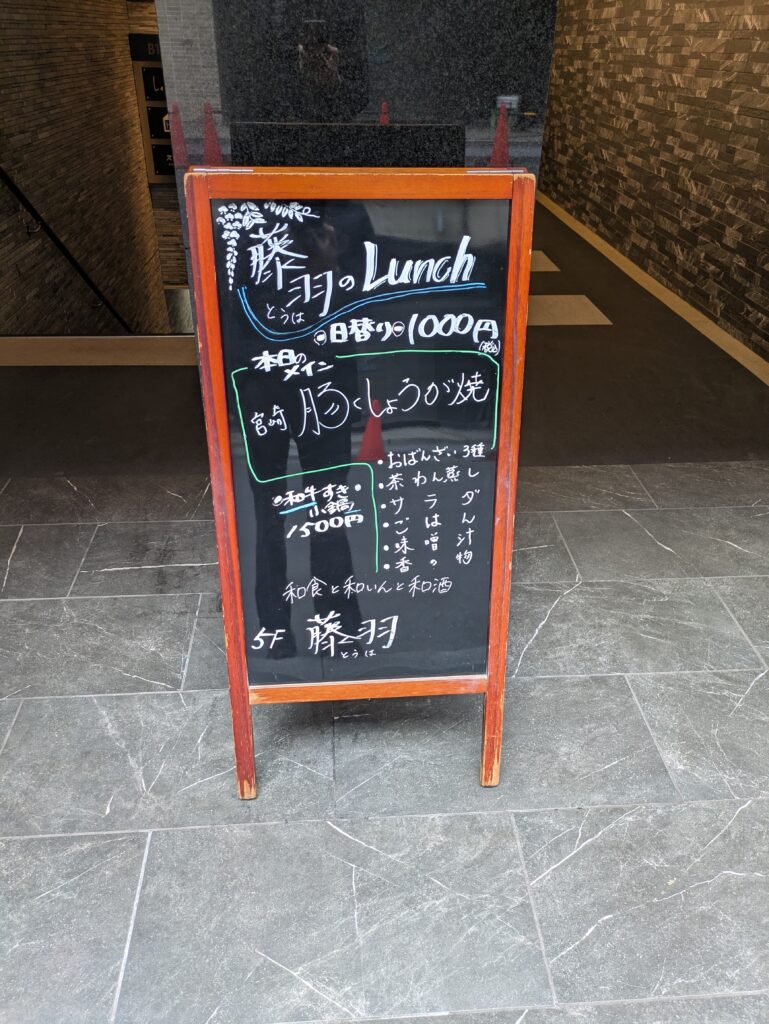 藤羽のLunch
とうは
日替り 1000円
(税込)
本日の
メイン
宮崎 豚しょうが焼
・おばんざい3種
・茶わん蒸し
・サラダ
・ごはん
・味噌汁
・香の物
和牛すき
小鍋
1500円
和食と和いんと和酒
5F 藤羽
とうは